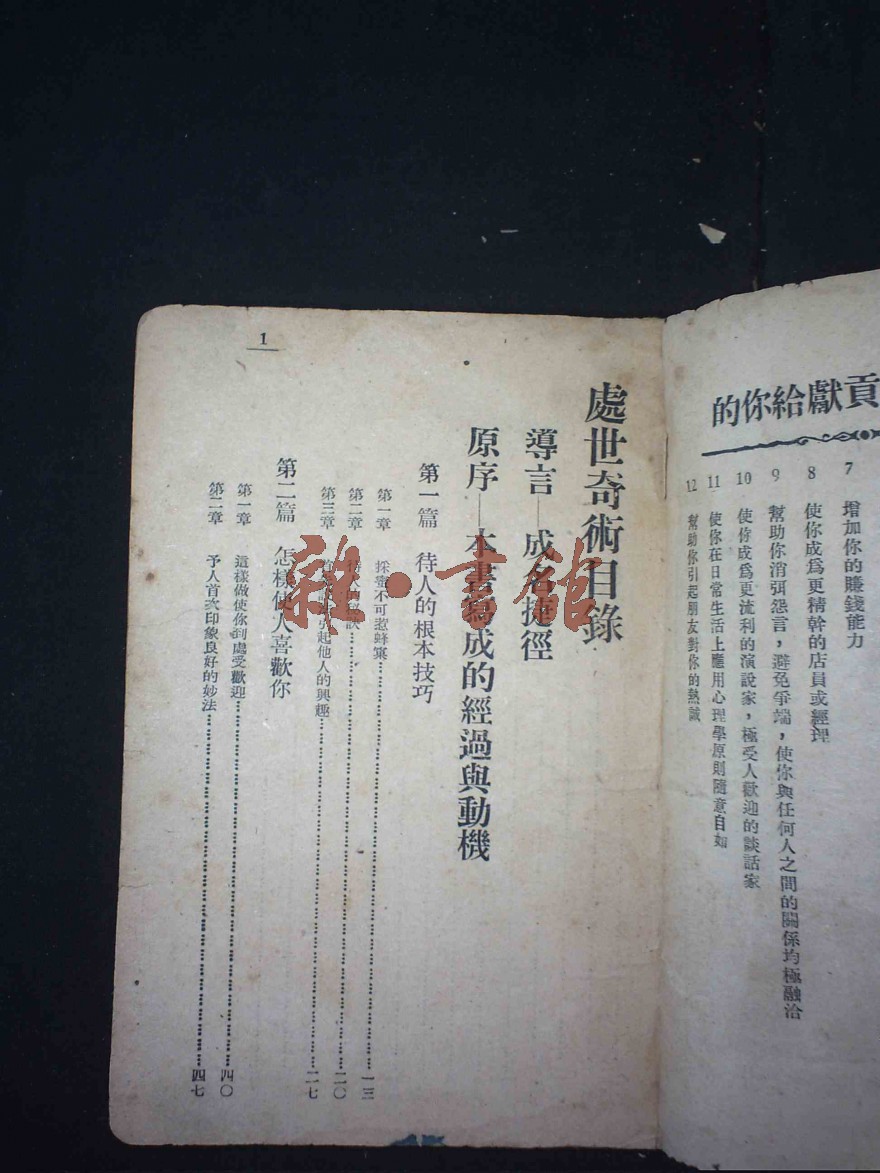 貢獻給你的
7 增加你的賺錢能力
8 使你成爲更精幹的店員或經理
9 幫助你消弭怨言，避免爭端，使你與任何人之間的關係均極融洽
10 使你成爲更流利的演說家，極受人歡迎的談話家
11 使你在日常生活上應用心理學原則隨意自如
12 幫助你引起朋友對你的熱誠
1
處世奇術目錄
導言—成名捷徑
原序—本書寫成的經過與動機
第一篇 待人的根本技巧
第一章 採蜜不可惹蜂窠……一三
第二章 待人的祕訣……二〇
第三章 引起他人的興趣……二七
第二篇 怎樣使人喜歡你
第一章 這樣做使你到處受歡迎……四〇
第二章 予人首次印象良好的妙法……四七
雜·書館